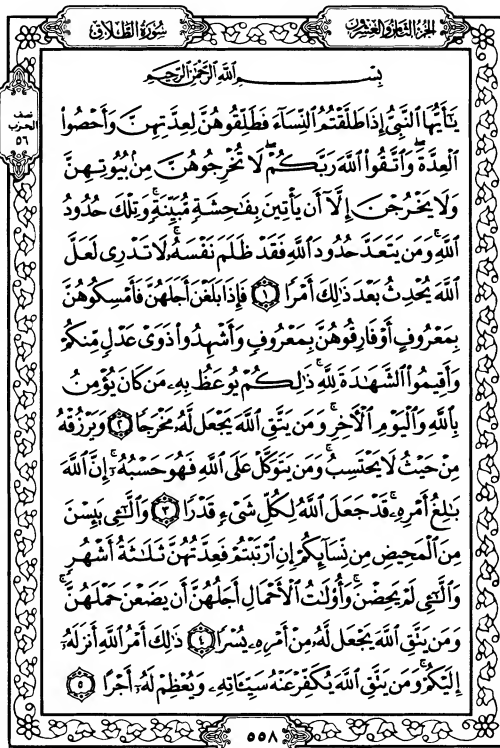 الجزء الثامن والعشرون
سورة الطلاق
نصف
الحزب
٥٦
بِسْمِ ٱللَّهِ ٱلرَّحْمَٰنِ ٱلرَّحِيمِ
يَٰٓأَيُّهَا ٱلنَّبِىُّ إِذَا طَلَّقْتُمُ ٱلنِّسَآءَ فَطَلِّقُوهُنَّ لِعِدَّتِهِنَّ وَأَحْصُوا۟
ٱلْعِدَّةَ ۖ وَٱتَّقُوا۟ ٱللَّهَ رَبَّكُمْ ۖ لَا تُخْرِجُوهُنَّ مِنۢ بُيُوتِهِنَّ
وَلَا يَخْرُجْنَ إِلَّآ أَن يَأْتِينَ بِفَٰحِشَةٍ مُّبَيِّنَةٍ ۚ وَتِلْكَ حُدُودُ
ٱللَّهِ ۚ وَمَن يَتَعَدَّ حُدُودَ ٱللَّهِ فَقَدْ ظَلَمَ نَفْسَهُۥ ۚ لَا تَدْرِى لَعَلَّ
ٱللَّهَ يُحْدِثُ بَعْدَ ذَٰلِكَ أَمْرًا ١ فَإِذَا بَلَغْنَ أَجَلَهُنَّ فَأَمْسِكُوهُنَّ
بِمَعْرُوفٍ أَوْ فَارِقُوهُنَّ بِمَعْرُوفٍ وَأَشْهِدُوا۟ ذَوَىْ عَدْلٍ مِّنكُمْ
وَأَقِيمُوا۟ ٱلشَّهَٰدَةَ لِلَّهِ ۚ ذَٰلِكُمْ يُوعَظُ بِهِۦ مَن كَانَ يُؤْمِنُ
بِٱللَّهِ وَٱلْيَوْمِ ٱلْءَاخِرِ ۚ وَمَن يَتَّقِ ٱللَّهَ يَجْعَل لَّهُۥ مَخْرَجًا ٢ وَيَرْزُقْهُ
مِنْ حَيْثُ لَا يَحْتَسِبُ ۚ وَمَن يَتَوَكَّلْ عَلَى ٱللَّهِ فَهُوَ حَسْبُهُۥٓ ۚ إِنَّ ٱللَّهَ
بَٰلِغُ أَمْرِهِۦ ۚ قَدْ جَعَلَ ٱللَّهُ لِكُلِّ شَىْءٍ قَدْرًا ٣ وَٱلَّٰٓـِٔى يَئِسْنَ
مِنَ ٱلْمَحِيضِ مِن نِّسَآئِكُمْ إِنِ ٱرْتَبْتُمْ فَعِدَّتُهُنَّ ثَلَٰثَةُ أَشْهُرٍ
وَٱلَّٰٓـِٔى لَمْ يَحِضْنَ ۚ وَأُو۟لَٰتُ ٱلْأَحْمَالِ أَجَلُهُنَّ أَن يَضَعْنَ حَمْلَهُنَّ ۚ
وَمَن يَتَّقِ ٱللَّهَ يَجْعَل لَّهُۥ مِنْ أَمْرِهِۦ يُسْرًا ٤ ذَٰلِكَ أَمْرُ ٱللَّهِ أَنزَلَهُۥٓ
إِلَيْكُمْ ۚ وَمَن يَتَّقِ ٱللَّهَ يُكَفِّرْ عَنْهُ سَيِّـَٔاتِهِۦ وَيُعْظِمْ لَهُۥٓ أَجْرًا ٥
٥٥٨